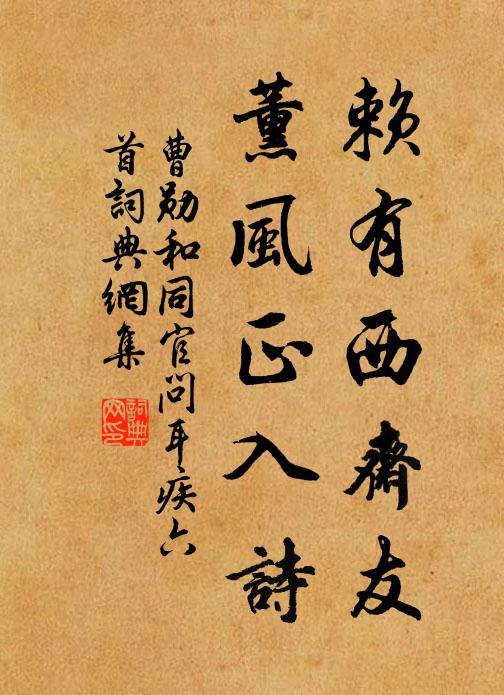 賴有西齋友
薰風正入詩
曹勛和同官問耳疾六
首詞典網集
詞典
网印